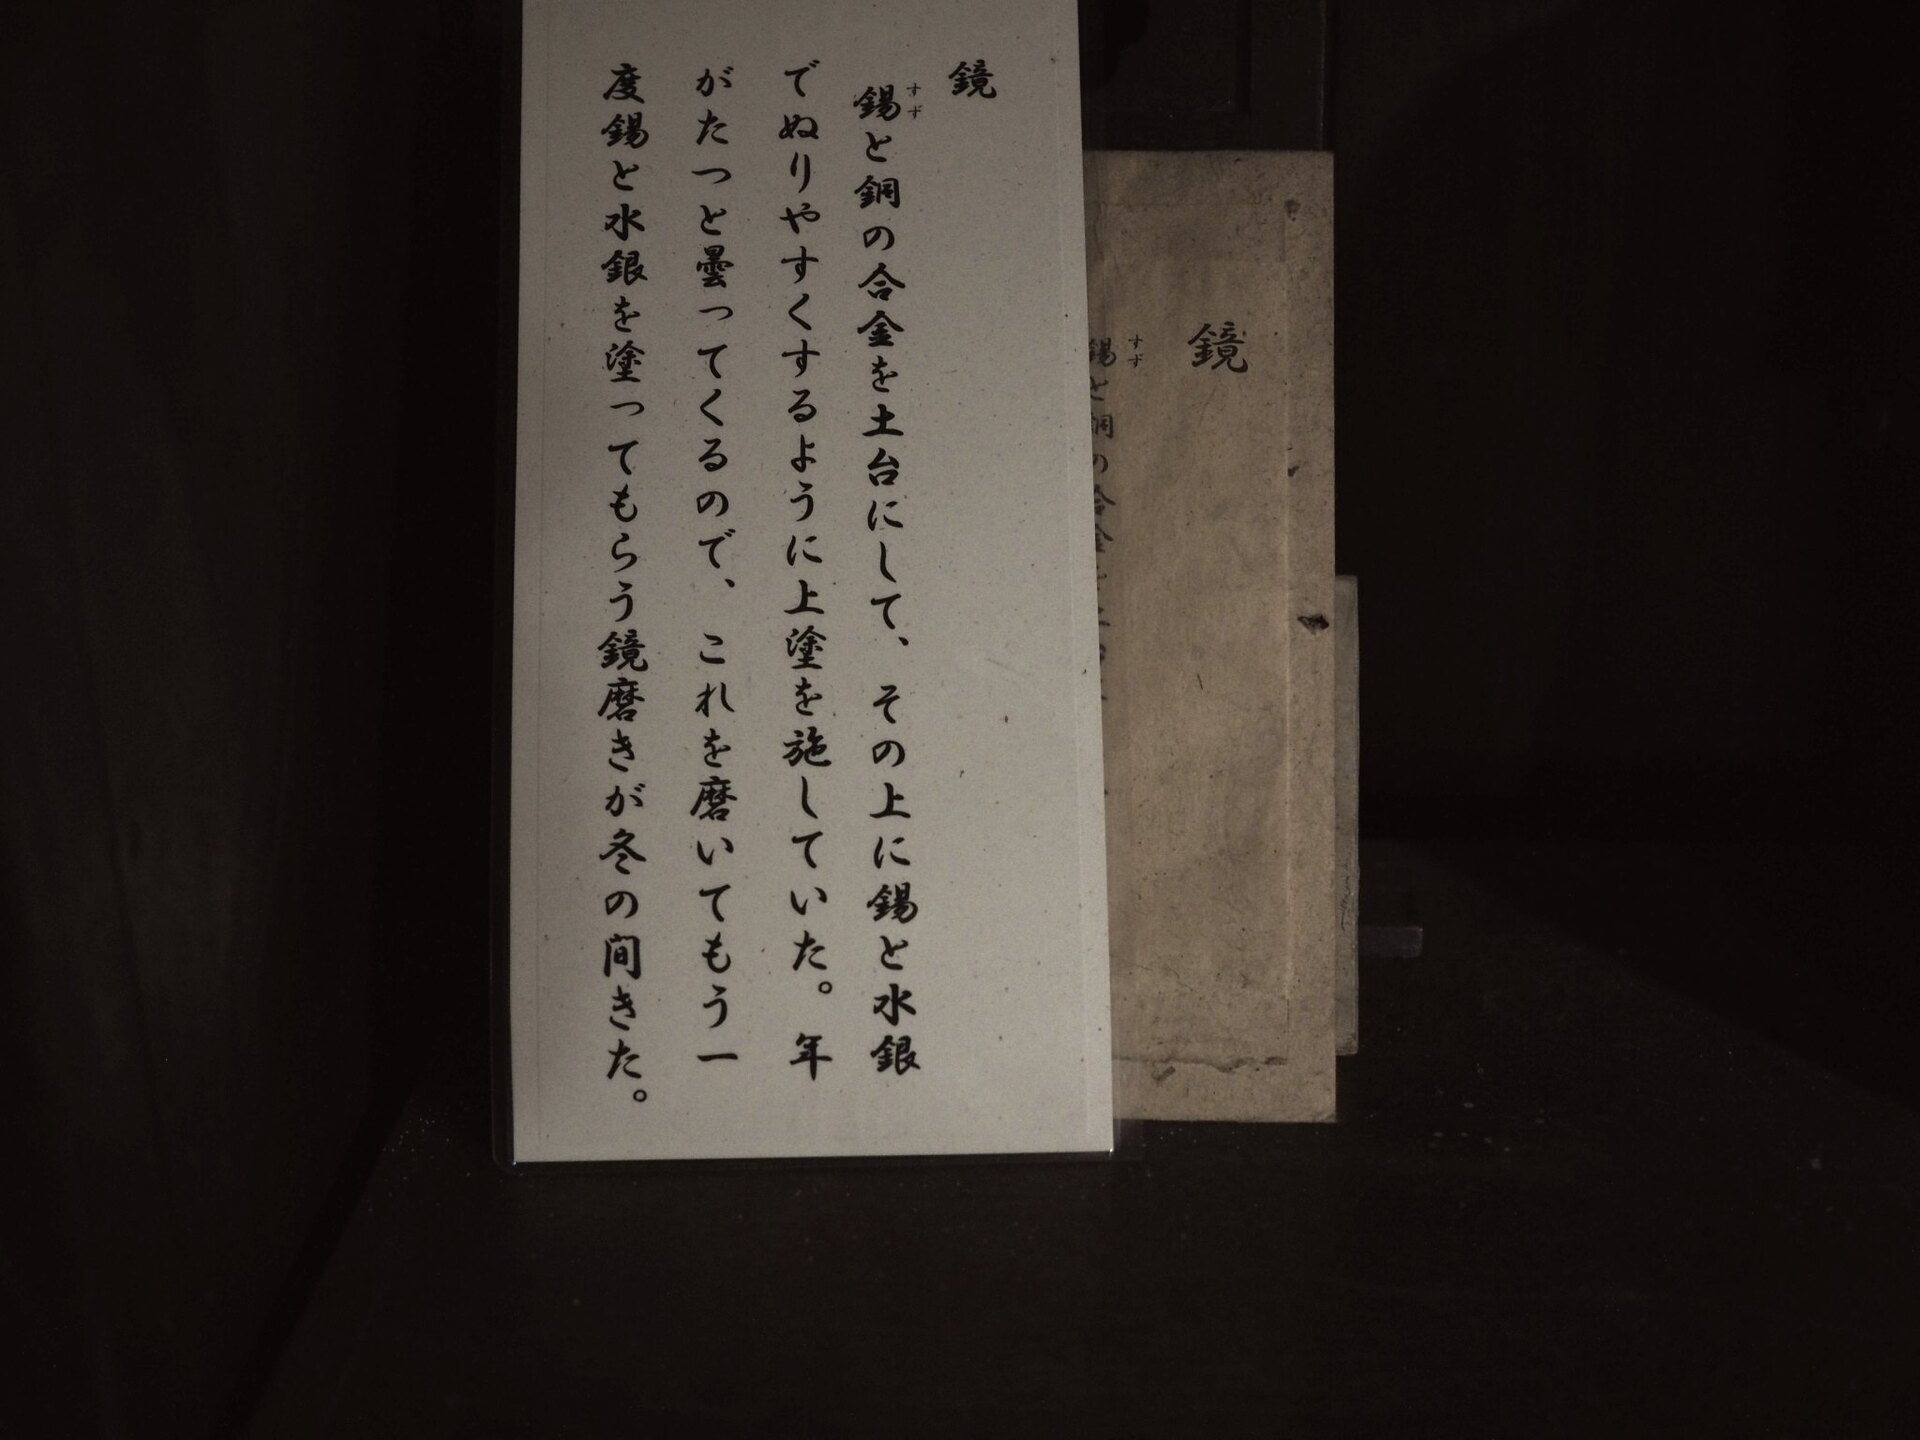 鏡
錫と銅の合金を土台にして、その上に錫と水銀
すず
でぬりやすくするように上塗を施していた。年
がたつと曇ってくるので、これを磨いてもう一
度錫と水銀を塗ってもらう鏡磨きが冬の間きた。
鏡
錫と銅の合金
すず